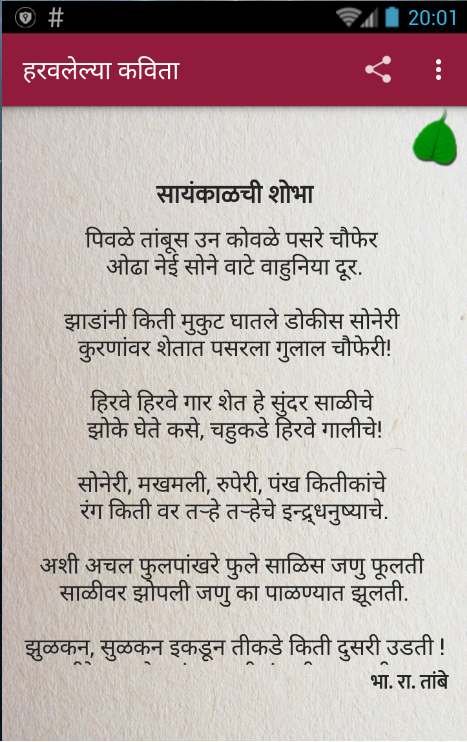 # 20:01
हरवलेल्या कविता
सायंकाळची शोभा
पिवळे तांबूस उन कोवळे पसरे चौफेर
ओढा नेई सोने वाटे वाहुनिया दूर.
झाडांनी किती मुकुट घातले डोकीस सोनेरी
कुरणांवर शेतात पसरला गुलाल चौफेरी!
हिरवे हिरवे गार शेत हे सुंदर साळीचे
झोके घेते कसे, चहुकडे हिरवे गालीचे!
सोनेरी, मखमली, रुपेरी, पंख कितीकांचे
रंग किती वर तऱ्हे तऱ्हेचे इन्द्रधनुष्याचे.
अशी अचल फुलपांखरे फुले साळिस जणु फूलती
साळीवर झोपली जणु का पाळण्यात झूलती.
झुळकन, सुळकन इकडून तीकडे किती दुसरी उडती !
भा. रा. तांबे